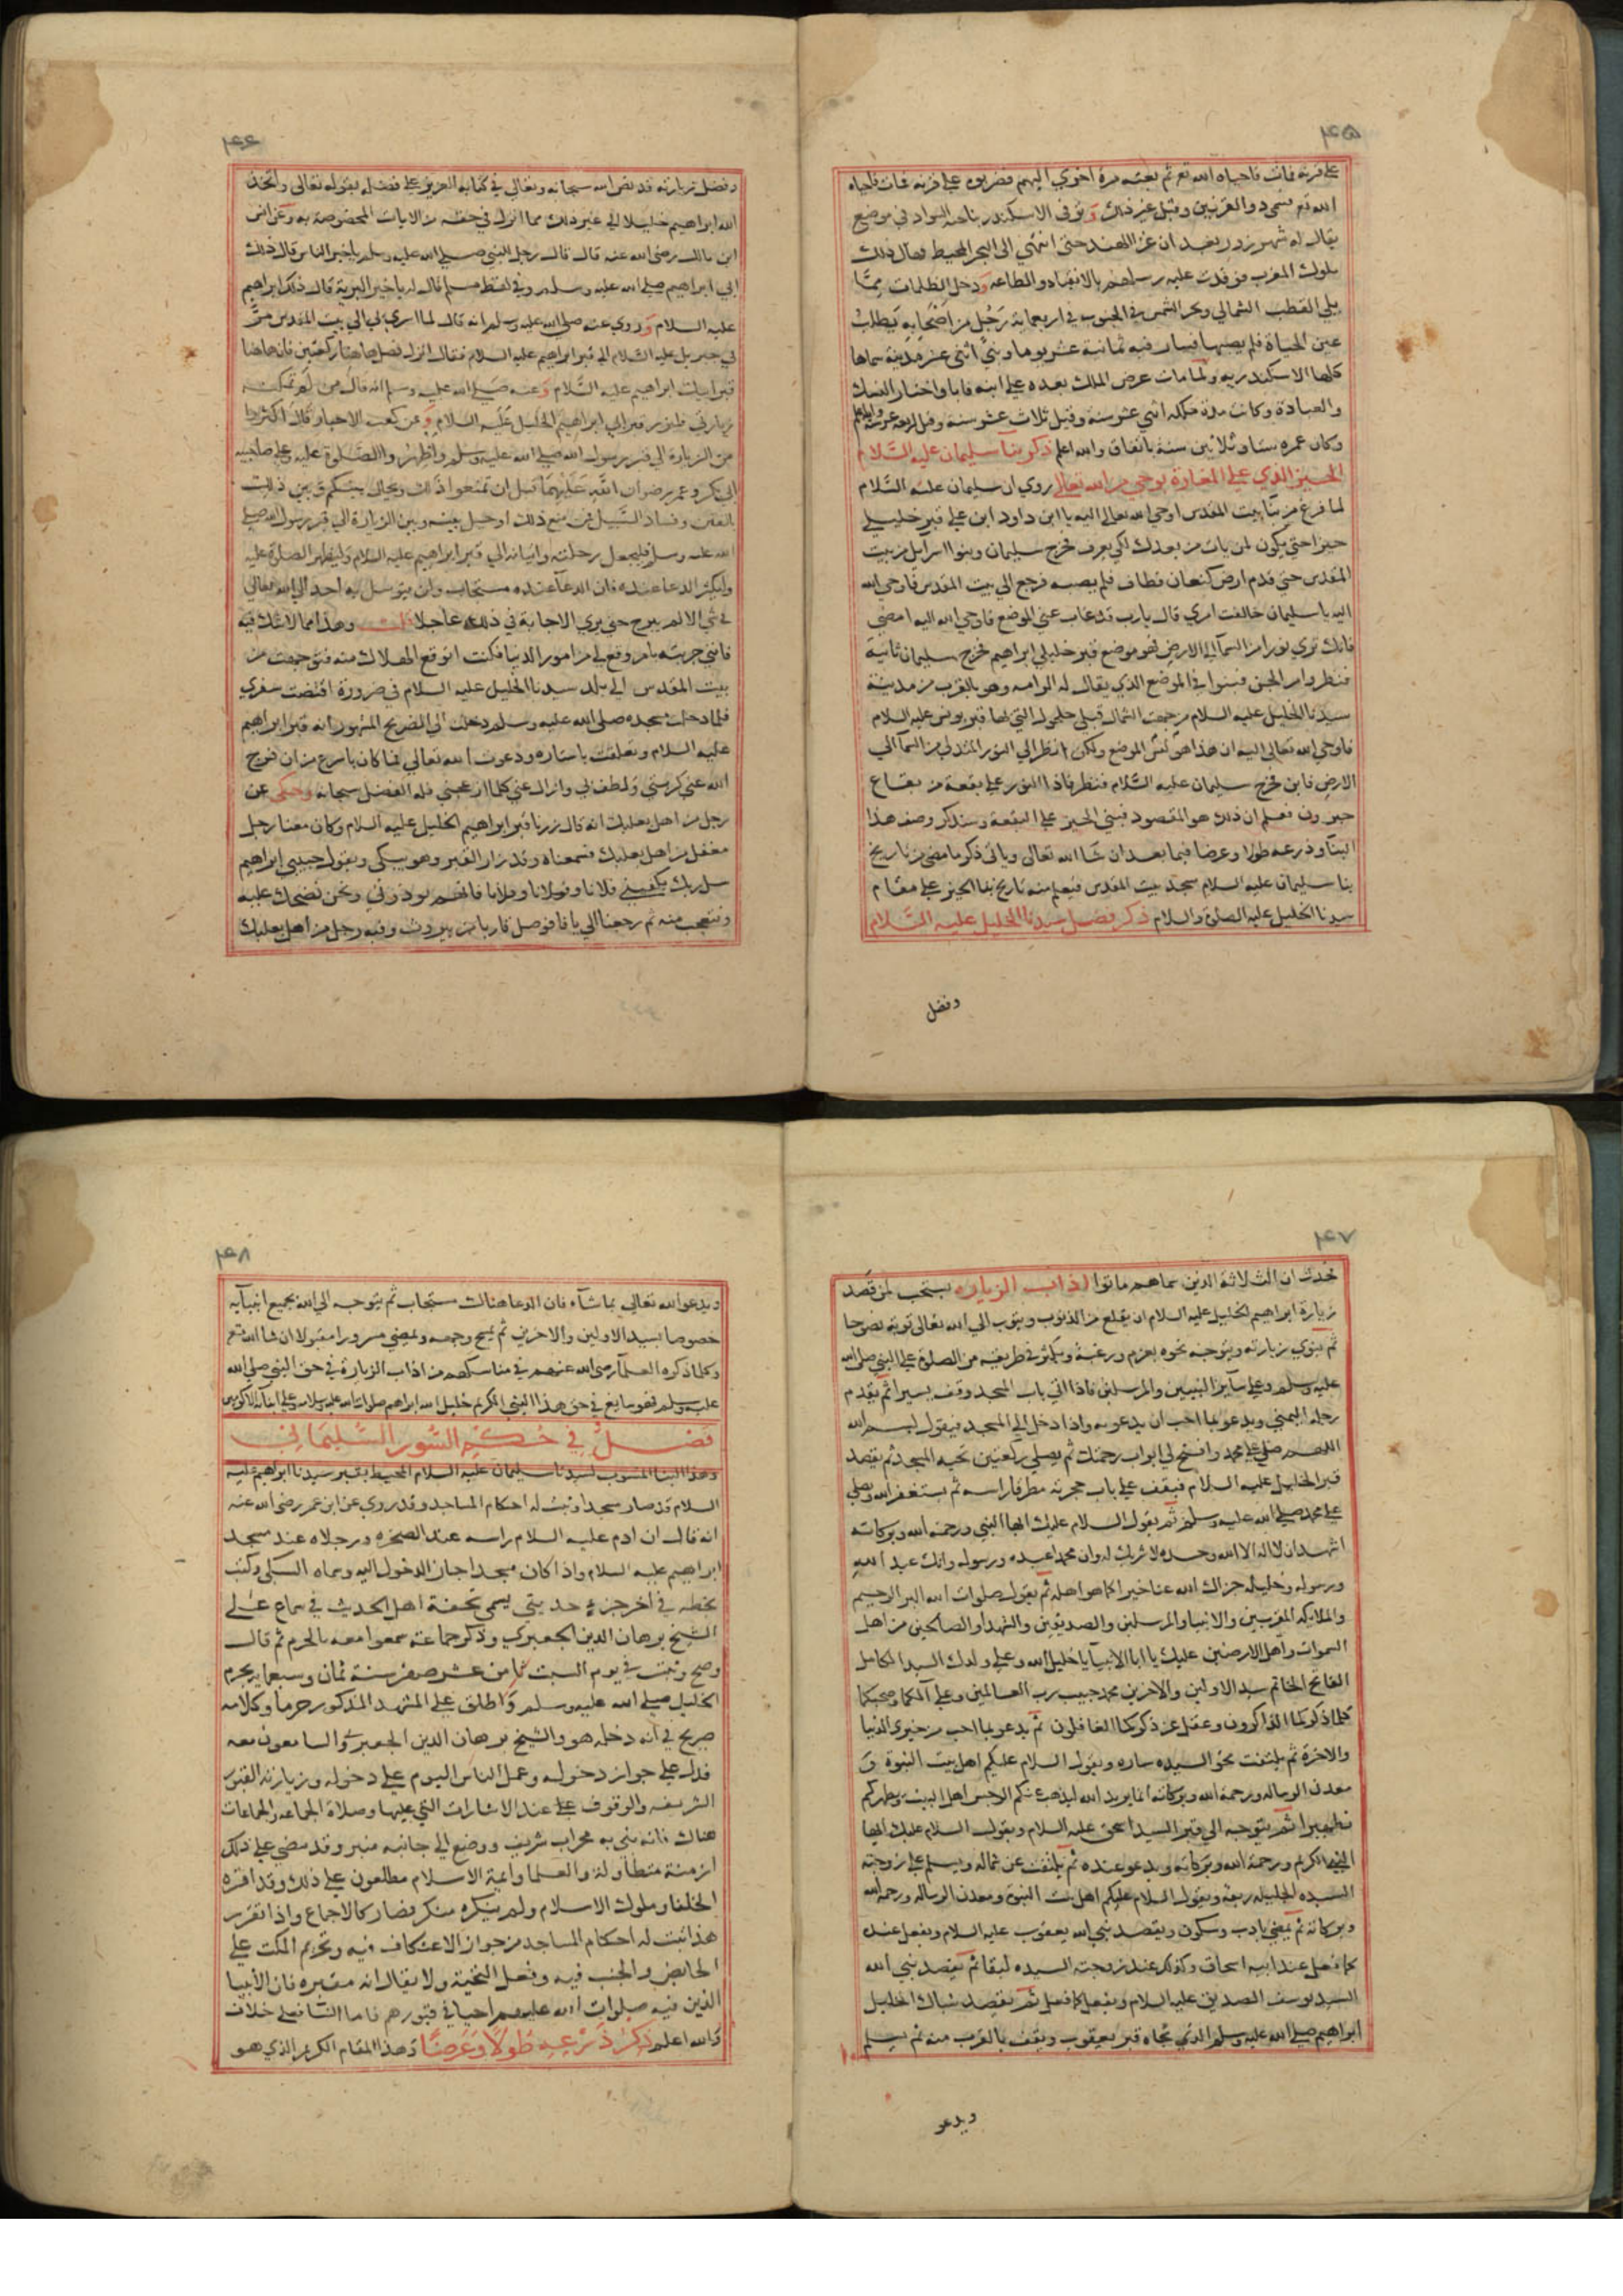 ٤٥
علي قرنه فمات فاحياه الله تع ثم بعثه مرة اخري اليهم فضربوه علي قرنه فمات فاحياه
الله تع فسمي ذو القرنين وقيل غير ذلك وتوفي الاسكندر بناحية السواد في موضع
يقال له شهر زور بعد ان غزا الهند حتي انتهي الي البحر المحيط فهال ذلك
ملوك المغرب فوفدت عليه رسلهم بالانقياد والطاعة ودخل الظلمات مما
يلي القطب الشمالي وبحر الشمس في الجنوب في اربعماية رجل من اصحابه يطلب
عين الحياة فلم يصبها فسار فيه ثمانية عشر يوما وبني اثني عشر مدينة سماها
كلها الاسكندريه ولما مات عرض الملك بعده علي ابنه فابا واختار النسك
والعبادة وكانت مدة ملكه اثني عشر سنة وقيل ثلاث عشر سنة وقيل اربعة عشر سنة والله اعلم
وكان عمره ستا وثلاثين سنة باتفاق والله اعلم ذكر بنا سليمان عليه السلام
الحيز الذي علي المغارة بوحي من الله تعالي روي ان سليمان عليه السلام
لما فرغ من بنا بيت المقدس اوحي الله تعالي اليه يا ابن داود ابن علي قبر خليلي
حيزا حتي يكون لمن يات من بعدك لكي يعرف فخرج سليمان وبنوا اسرايل من بيت
المقدس حتي قدم ارض كنعان فطاف فلم يصبه فرجع الي بيت المقدس فاوحي الله
اليه يا سليمان خالفت امري قال يا رب قد غاب عني الموضع فاوحي الله اليه امضي
فانك تري نورا من السمآ الي الارض فهو موضع قبر خليلي ابراهيم فخرج سليمان ثانية
فنظر وامر الجن فبنوا في الموضع الذي يقال له الرامه وهو بالقرب من مدينة
سيدنا الخليل عليه السلام من جهت الشمال قبلي حلحول التي بها قبر يونس عليه السلام
فاوحي الله تعالي اليه ان هذا هو ليس الموضع ولكن انظر الي النور المتدلي من السمآ الي
الارض فابن فخرج سليمان عليه السلام فنظر فاذا النور علي بقعة من بقاع
حبرون فعلم ان ذلك هو المقصود فبني الحيز علي البقعة وسنذكر وصف هذا
البنآ وذرعه طولا وعرضا فيما بعد ان شا الله تعالي وياتي ذكر ما مضي من تاريخ
بنا سليمان عليه السلام مسجد بيت المقدس فيعلم منه تاريخ بنا الحيز علي مقام
سيدنا الخليل عليه الصلاة والسلام ذكر فضل سيدنا الخليل عليه السلام
وفضل
٤٦
وفضل زيارته قد نص الله سبحانه وتعالي في كتابه العزيز علي فضله بقوله تعالي واتخذ
الله ابراهيم خليلا الي غير ذلك مما انزل في حقه من الايات المخصوصة به وعن انس
ابن مالك رضي الله عنه قال قال رجل للنبي صلي الله عليه وسلم يا خير الناس قال ذلك
ابي ابراهيم صلي الله عليه وسلم وفي لفظ مسلم قال له يا خير البرية قال ذلك ابراهيم
عليه السلام وروي عنه صلي الله عليه وسلم انه قال لما اسري بي الي بيت المقدس مر
بي جبريل عليه السلام الي قبر ابراهيم عليه السلام فقال انزل فصل هاهنا ركعتين فان هاهنا
قبر ابيك ابراهيم عليه السلام وعنه صلي الله عليه وسلم انه قال من لم تمكنه
زيارتي فليزر قبر ابي ابراهيم الخليل عليه السلام وعن كعب الاحبار قال اكثروا
من الزيارة الي قبر رسول الله صلي الله عليه وسلم واظهروا الصلوة عليه وعلي صاحبيه
ابي بكر وعمر رضوان الله عليهما قبل ان تمنعوا ذلك ويحال بينكم وبين ذلك
بالفتن وفساد السبيل فمن منع ذلك او حيل بينه وبين الزيارة الي قبر رسول الله صلي
الله عليه وسلم فليجعل رحلته واتيانه الي قبر ابراهيم عليه السلام وليظهر الصلوة عليه
وليكثر الدعا عنده فان الدعآ عنده مستجاب ولن يتوسل به احد الي الله تعالي
في شي الا لم يبرح حتي يري الاجابة في ذلك عاجلا قلت وهذا مما لا شك فيه
فانني جربته بامر وقع لي من امور الدنيا فكنت اتوقع الهلاك منه فتوجهت من
بيت المقدس الي بلد سيدنا الخليل عليه السلام في ضرورة اقتضت سفري
فلما دخلت مسجده صلي الله عليه وسلم ودخلت الي الضريح المشهور انه قبر ابراهيم
عليه السلام وتعلقت باستاره ودعوت الله تعالي فما كان باسرع من ان فرج
الله عني كربتي ولطف بي وازال عني كلما ازعجني فله الفضل سبحانه وحكي عن
رجل من اهل بعلبك انه قال زرنا قبر ابراهيم الخليل عليه السلام وكان معنا رجل
مغفل من اهل بعلبك فسمعناه وقد زار القبر وهو يبكي ويقول حبيبي ابراهيم
سل ربك يكفيني فلانا وفولانا وفلانا فانهم يوذوني ونحن نضحك عليه
ونتعجب منه ثم رجعنا الي يافا فوصل قارب من بيروت وفيه رجل من اهل بعلبك
٤٧
فحدث ان الثلاثة الذين سماهم ماتوا اداب الزياره يستحب لمن قصد
زيارة ابراهيم الخليل عليه السلام ان يقلع من الذنوب ويتوب الي الله تعالي توبة نصوحا
ثم ينوي زيارته ويتوجه نحوه بعزم ورغبة ويكثر في طريقه من الصلوة علي النبي صلي الله
عليه وسلم وعلي سآير النبيين والمرسلين فاذا اتي باب المسجد وقف يسيرا ثم يقدم
رجله اليمني ويدعو بما احب ان يدعو به واذا دخل الي المسجد فيقول بسم الله
اللهم صلي علي محمد وافتح لي ابواب رحمتك ثم يصلي ركعتين تحية المسجد ثم يقصد
قبر الخليل عليه السلام فيقف علي باب حجرته مطرقا راسه ثم يستغفر الله ويصلي
علي محمد صلي الله عليه وسلم ثم يقول السلام عليك ايها النبي ورحمة الله وبركاته
اشهد ان لا اله الا الله وحده لا شريك له وان محمدا عبده ورسوله وانك عبد الله
ورسوله وخليله جزاك الله عنا خيرا كما هو اهله ثم يقول صلوات الله البر الرحيم
والملايكه المقربين والانبيا والمرسلين والصديقين والشهدا والصالحين من اهل
السموات واهل الارضين عليك يا ابا الانبيا يا خليل الله وعلي ولدك السيد الكامل
الفاتح الخاتم سيد الاولين والاخرين محمد حبيب رب العالمين وعلي آلكما وصحبكما
كلما ذكركما الذاكرون وغفل عن ذكركما الغافلون ثم يدعو بما احب من خيري الدنيا
والاخرة ثم يلتفت نحو السيده ساره ويقول السلام عليكم اهل بيت النبوة و
معدن الرساله ورحمة الله وبركاته انما يريد الله ليذهب عنكم الرجس اهل البيت ويطهركم
تطهيرا ثم يتوجه الي قبر السيد اسحق عليه السلام ويقول السلام عليك ايها
النبي الكريم ورحمة الله وبركاته ويدعو عنده ثم يلتفت عن شماله ويسلم علي زوجته
السيده الجليله ربقه ويقول السلام عليكم اهل بيت النبوة ومعدن الرساله ورحمة الله
وبركاته ثم يمضي بادب وسكون ويقصد نبي الله يعقوب عليه السلام ويفعل عنده
كما فعل عند ابيه اسحاق وكذلك عند زوجته السيده ليقا ثم يقصد نبي الله
السيد يوسف الصديق عليه السلام ويفعل كما فعل ثم يقصد شباك الخليل
ابراهيم صلي الله عليه وسلم الذي تجاه قبر يعقوب ويقف بالقرب منه ثم يسلم
ويدعو
٤٨
ويدعو الله تعالي بما شآء فان الدعا هناك مستجاب ثم يتوجه الي الله بجميع انبيآيه
خصوصا بسيد الاولين والاخرين ثم يمسح وجهه ويمضي مسرورا مقبولا ان شا الله تع
وكلما ذكره العلمآ رضي الله عنهم في مناسكهم من اداب الزيارة في حق النبي صلي الله
عليه وسلم فهو سايغ في حق هذا النبي الكريم خليل الله ابراهيم صلوات الله عليه وسلامه وعلي ابنآيه الاكرمين
فصل في حكم السور السليماني
وهذا البنا المنسوب لسيدنا سليمان عليه السلام المحيط بقبر سيدنا ابراهيم عليه
السلام قد صار مسجدا وثبت له احكام المساجد وقد روي عن ابن عمر رضي الله عنه
انه قال ان ادم عليه السلام راسه عند الصخره ورجلاه عند مسجد
ابراهيم عليه السلام واذا كان مسجدا جاز الدخول اليه وسماه السبكي وكتب
بخطه في اخر جزء حديثي يسمي تحفة اهل الحديث في سماع علي
الشيخ برهان الدين الجعبري وذكر جماعة سمعوا معه بالحرم ثم قال
وصح وثبت في يوم السبت ثامن عشر صفر سنة ثمان وسبعماية بحرم
الخليل صلي الله عليه وسلم واطلق علي المشهد المذكور حرما وكلامه
صريح في انه دخله هو والشيخ برهان الدين الجعبري والسامعون معه
فدل علي جواز دخوله وعمل الناس اليوم علي دخوله وزيارته القبور
الشريفه والوقوف علي عند الاشارات التي عليها وصلاة الجماعه والجماعات
هناك فانه بني به محراب شريف ووضع الي جانبه منبر وقد مضي علي ذلك
ازمنة متطاولة والعلما وايمة الاسلام مطلعون علي ذلك وقد اقره
الخلفا وملوك الاسلام ولم ينكره منكر فصار كالاجماع واذا تقرر
هذا ثبت له احكام المساجد من جواز الاعتكاف فيه وتحريم المكث علي
الحايض والجنب فيه وفعل التحية ولا يقال انه مقبره فان الأنبيا
الذين فيه صلوات الله عليهم احيا في قبورهم فاما النسا فعلي خلاف
والله اعلم ذكر ذرعه طولا وعرضا وهذا المقام الكريم الذي هو